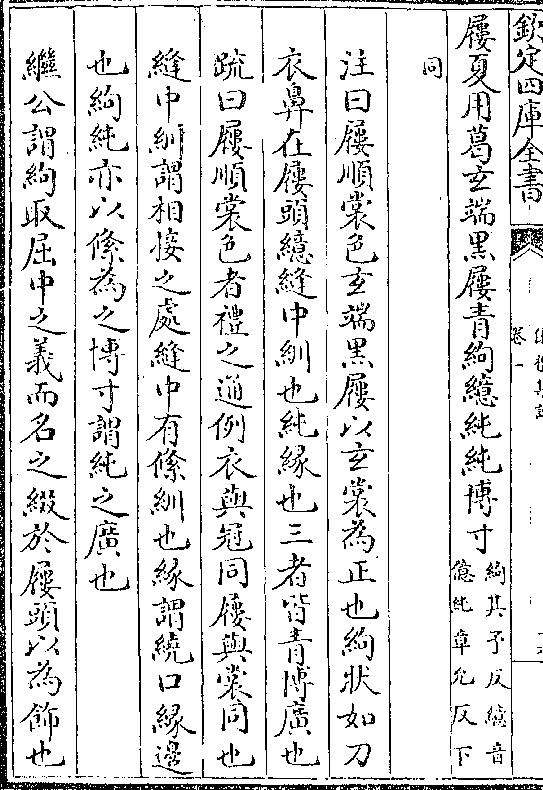 欽定四庫全書
卷一
屨夏用葛玄端黑屨青絇繶純純博寸絇其于反繶音
億純章允反下
同
注曰屨順裳色玄端黑屨以玄裳為正也絇狀如刀
衣鼻在屨頭繶縫中紃也純緣也三者皆青博廣也
疏曰屨順裳色者禮之通例衣與冠同屨與裳同也
縫中紃謂相接之處縫中有絛紃也緣謂繞口緣邊
也絇純亦以絛為之博寸謂純之廣也
繼公謂絇取屈中之義而名之綴於屨頭以為飾也